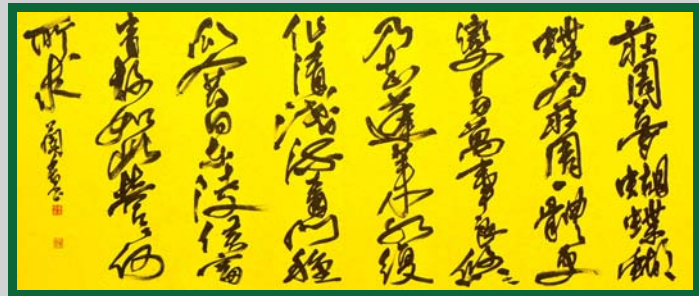 莊周夢蝴蝶蝴
蝶為莊周一體更
變易萬事良悠々
乃知蓬萊水復
作清淺流青門種
瓜人舊日東陵侯富
貴故如此營々何
所求